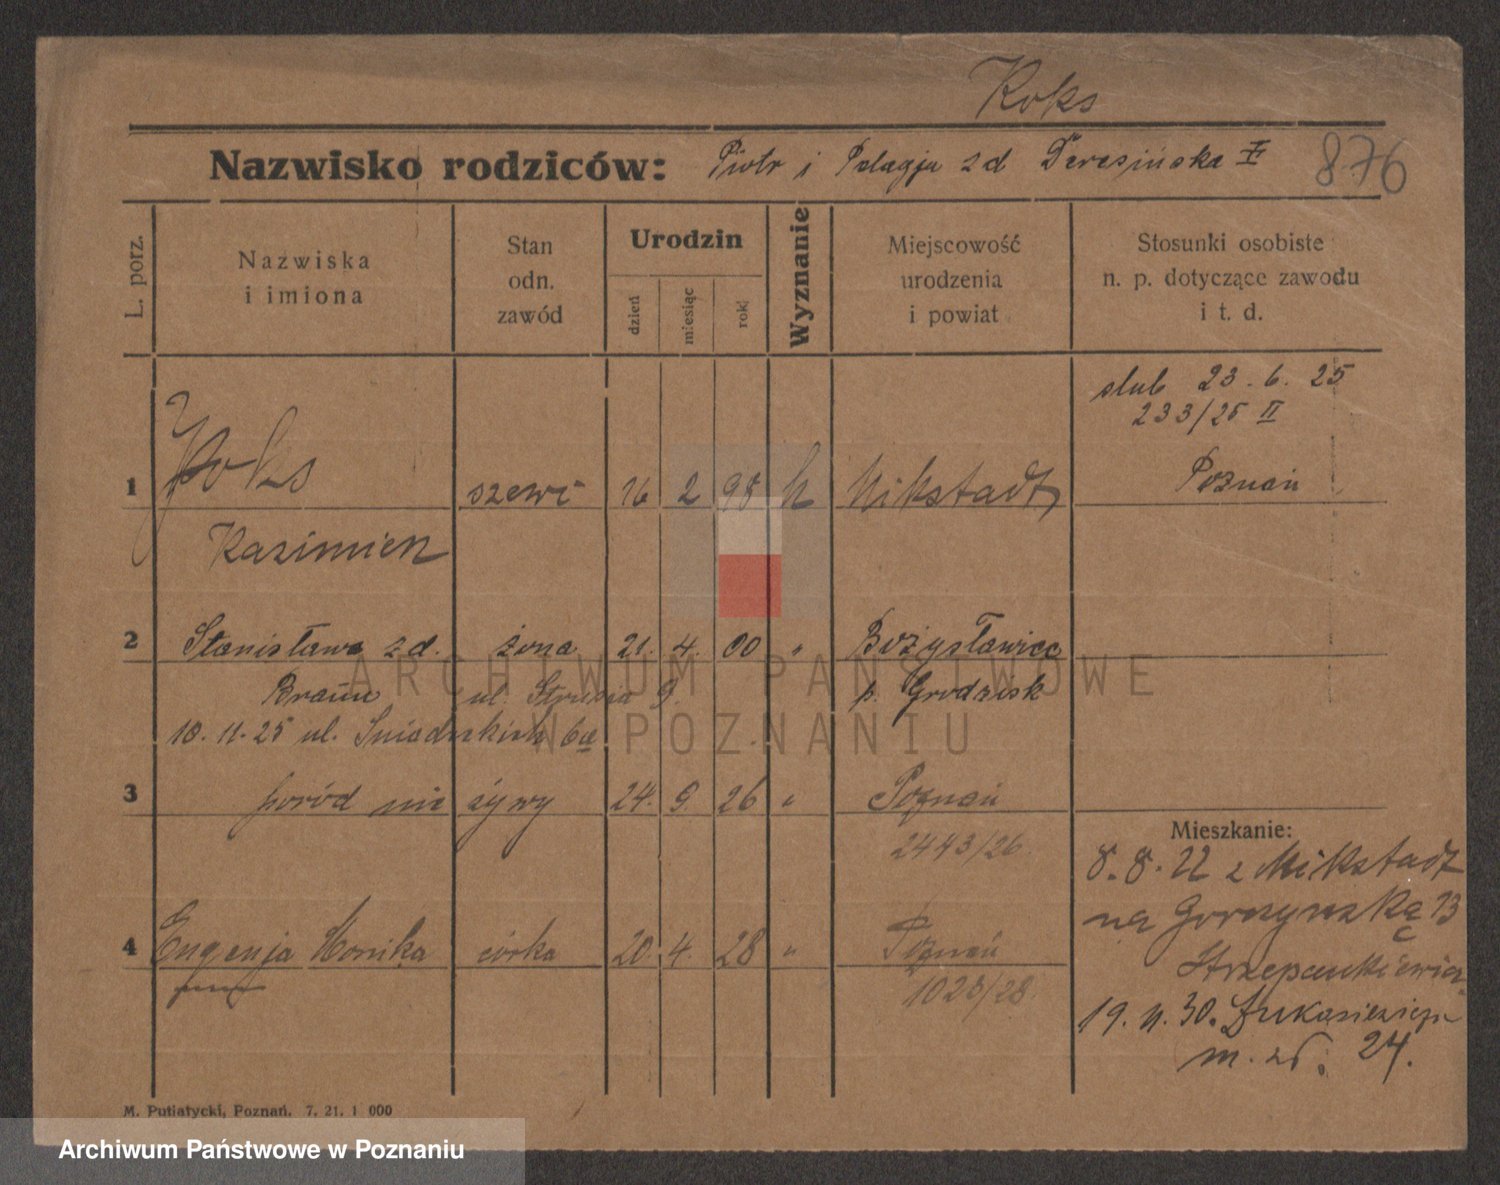 Koks
Nazwisko rodziców: Piotr i Pelagja z d Teresińska
876
L. porz.
Nazwiska
i imiona
Stan
odn.
zawód
Urodzin
dzień
miesiąc
rok
Wyznanie
Miejscowość
urodzenia
i powiat
Stosunki osobiste
n. p. dotyczące zawodu
i t. d.
ślub 23. 6. 25
233/25 II
Poznań
1 Koks szewc 16 2 98 k Mikstadt
Kazimierz
2 Stanisława z d. żona 21. 4. 00 " Bożysławice
Braun ul. Strusia 9. p. Grodzisk
10. 11. 25 ul. Śniadeckich 6a
3 poród nie żywy 24. 9. 26 " Poznań
2443/26
4 Eugenja Monika córka 20. 4. 28 " Poznań
1023/28
Mieszkanie:
8. 8. 22 z Mikstadt
na Gorczyńską 13
19. 11. 30. Łukasiewicza
m. 24.
M. Putiatycki, Poznań. 7. 21. 1 000
ARCHIWUM PAŃSTWOWE
W POZNANIU
Archiwum Państwowe w Poznaniu